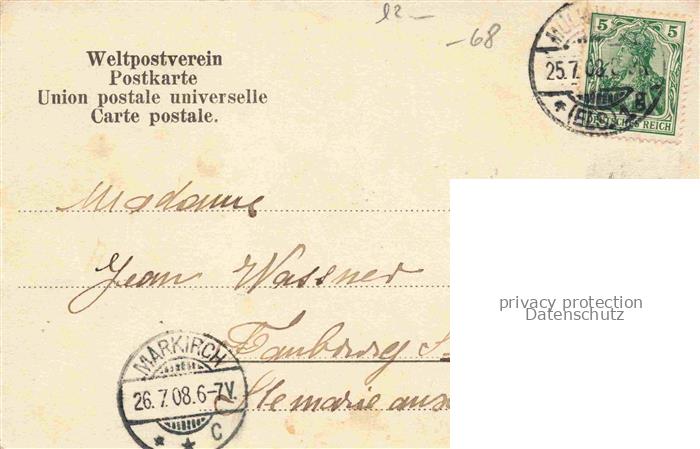 12 –
– 68
Weltpostverein
Postkarte
Union postale universelle
Carte postale.
5 5
25.7.08
B
(ELS.)
DEUTSCHES REICH
Madame
Jean Wassner
Faubourg
Ste marie aux
MARKIRCH
26.7.08.6-7V.
C
privacy protection
Datenschutz